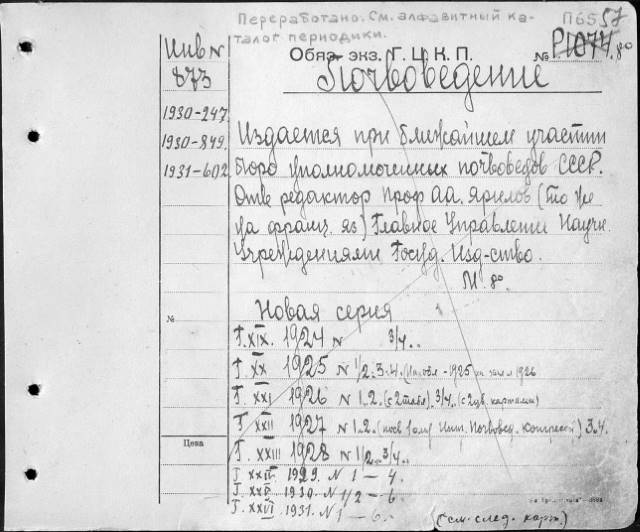 Переработано. См. алфавитный ка-
талог периодики.
П6557
Обяз. экз. Г. Ц. К. П.
№ Р1074. 8°
Инв №
873
1930-247
1930-849.
1931-602
Почвоведение
Издается при ближайшем участии
бюро уполномоченных почвоведов СССР.
Отв редактор проф АА. Ярилов (То же
на франц. яз) Главное Управление Научн.
Учреждениями Госуд. Изд-ство.
М. 8°
Новая серия
№
Т. XIX. 1924 № 3/4..
Т. XX 1925 № 1/2. 3. 4. 1925 1926
Т. XXI 1926 № 1. 2. (с 2 табл). 3/4. (с 2 цв. картами)
Т. XXII 1927 № 1. 2. (посв. Почвовед. Конгрессу) 3. 4.
Цена
Т. XXIII 1928 № 1/2. 3/4..
Т XXIV. 1929. № 1 — 4.
Т. XXV. 1930. № 1/2 — 6.
Т. XXVI. 1931. № 1 — 6.
(см. след. карт)